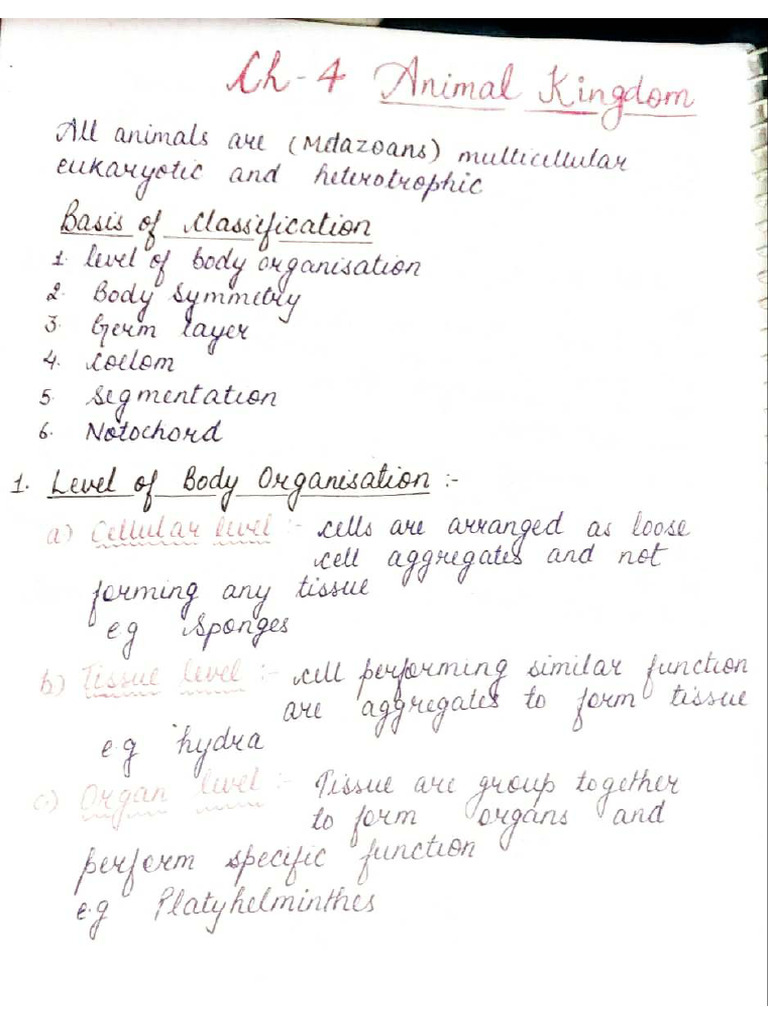 Ch-4 Animal Kingdom
All animals are (Metazoans) multicellular
eukaryotic and heterotrophic
Basis of Classification
1. level of body organisation
2. Body symmetry
3. Germ layer
4. coelom
5. segmentation
6. Notochord
1. Level of Body Organisation :-
a) Cellular level :- cells are arranged as loose
cell aggregates and not
forming any tissue
e.g Sponges
b) Tissue level :- cell performing similar function
are aggregates to form tissue
e.g hydra
c) Organ level :- Tissue are group together
to form organs and
perform specific function
e.g Platyhelminthes